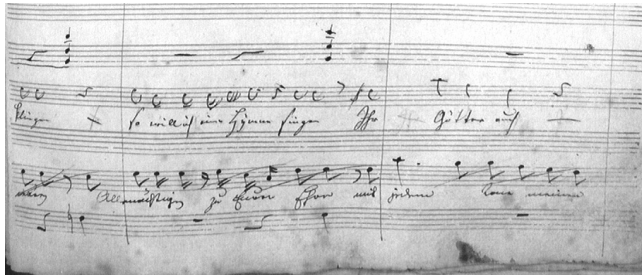 so will ich eine Hymne singen Ihr Götter euch
Allmächtigen zu eurer Ehre mit jedem Tone meiner